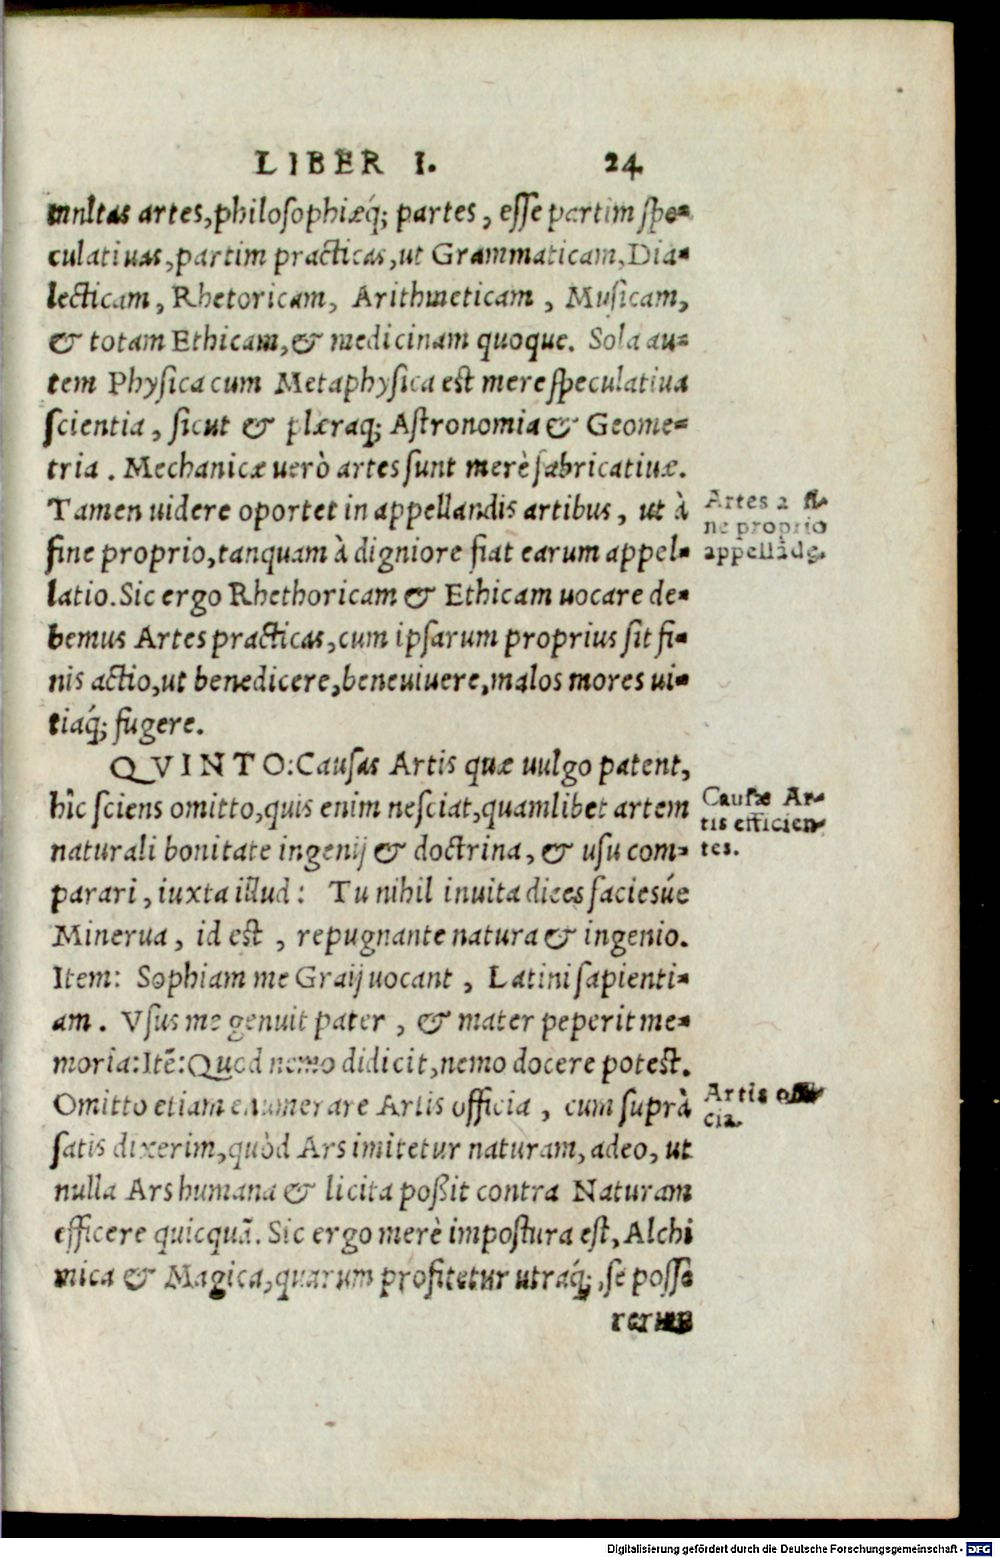 LIBER I. 24
multas artes, philosophiæq́; partes, esse partim spe-
culatiuas, partim practicas, ut Grammaticam, Dia-
lecticam, Rhetoricam, Arithmeticam, Musicam,
& totam Ethicam, & medicinam quoque. Sola au-
tem Physica cum Metaphysica est mere speculatiua
scientia, sicut & plæraq; Astronomia & Geome-
tria. Mechanicæ uerò artes sunt merè fabricatiuæ.
Tamen uidere oportet in appellandis artibus, ut à
fine proprio, tanquam à digniore fiat earum appel-
latio. Sic ergo Rhethoricam & Ethicam uocare de-
bemus Artes practicas, cum ipsarum proprius sit fi-
nis actio, ut benedicere, beneuiuere, malos mores ui-
tiaq́; fugere.
Artes a fi-
ne proprio
appellādę.
QVINTO: Causas Artis quæ uulgo patent,
hîc sciens omitto, quis enim nesciat, quamlibet artem
naturali bonitate ingenij & doctrina, & usu com-
parari, iuxta illud: Tu nihil inuita dices faciesúe
Minerua, id est, repugnante natura & ingenio.
Item: Sophiam me Graij uocant, Latini sapienti-
am. Vsus me genuit pater, & mater peperit me-
moria: Itē: Quod nemo didicit, nemo docere potest.
Omitto etiam enumerare Artis officia, cum suprà
satis dixerim, quòd Ars imitetur naturam, adeo, ut
nulla Ars humana & licita poßit contra Naturam
efficere quicquā. Sic ergo merè impostura est, Alchi
mica & Magica, quarum profitetur utraq́;, se posse
Causæ Ar-
tis efficien-
tes.
Artis offi-
cia.
rerum
Digitalisierung gefördert durch die Deutsche Forschungsgemeinschaft - DFG